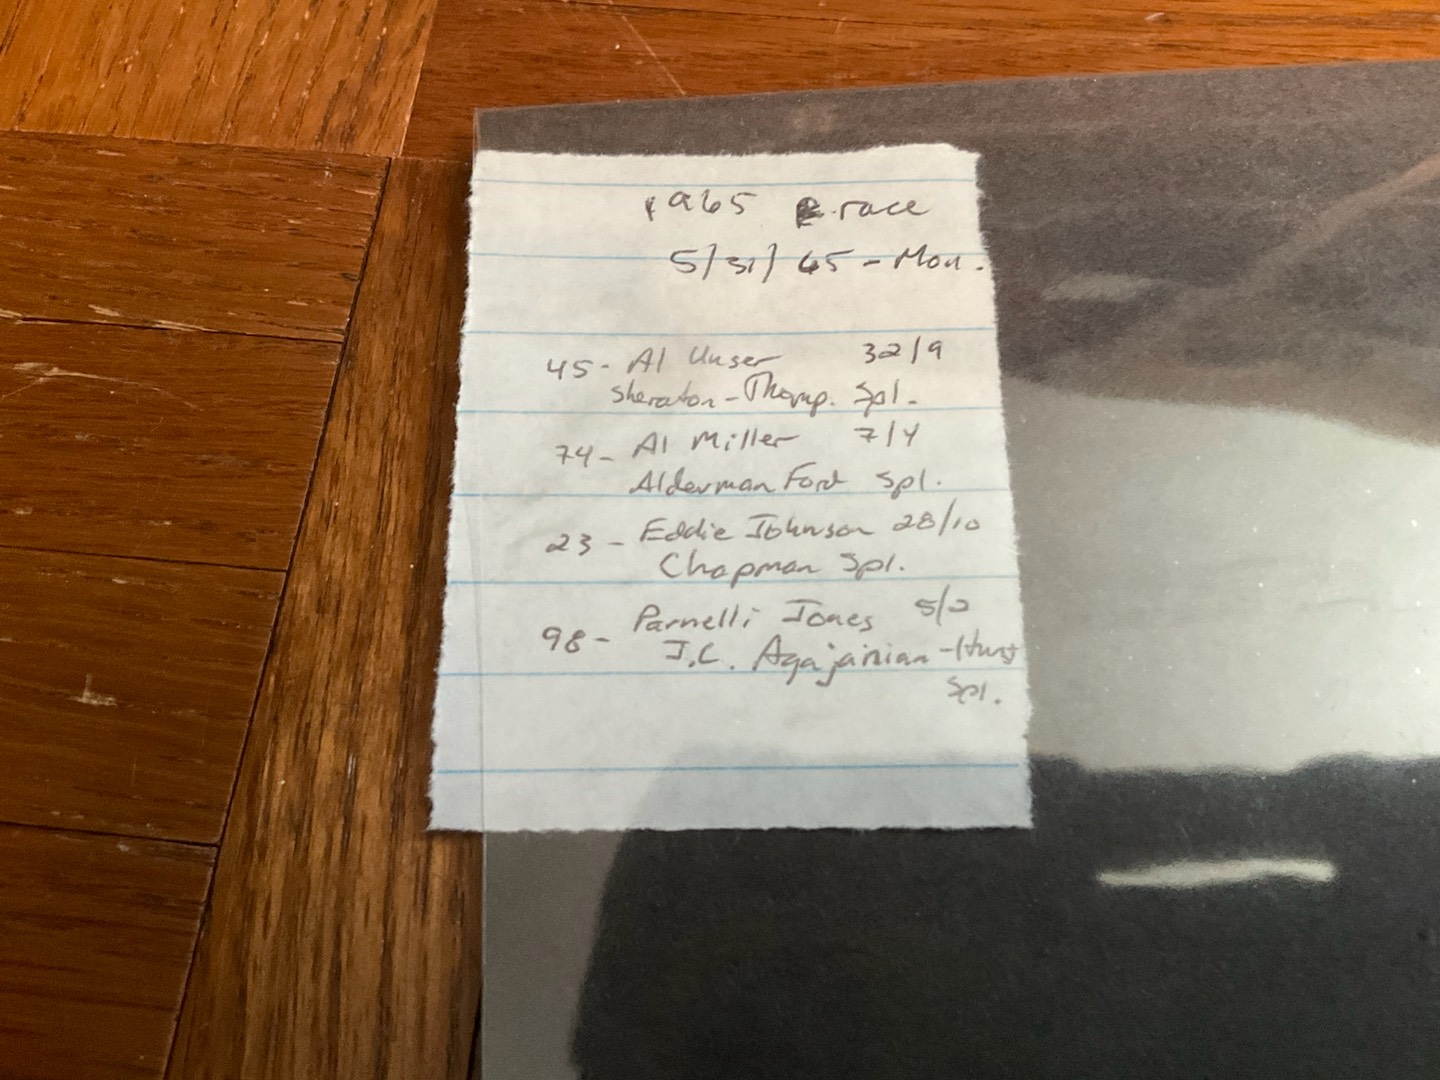 1965 race
5/31/65 - Mon.
45 - Al Unser 32/9
Sheraton - Thomp. Spl.
74 - Al Miller 7/4
Alderman Ford Spl.
23 - Eddie Johnson 28/10
Chapman Spl.
98 - Parnelli Jones 5/2
J.C. Agajanian - Hurst
Spl.